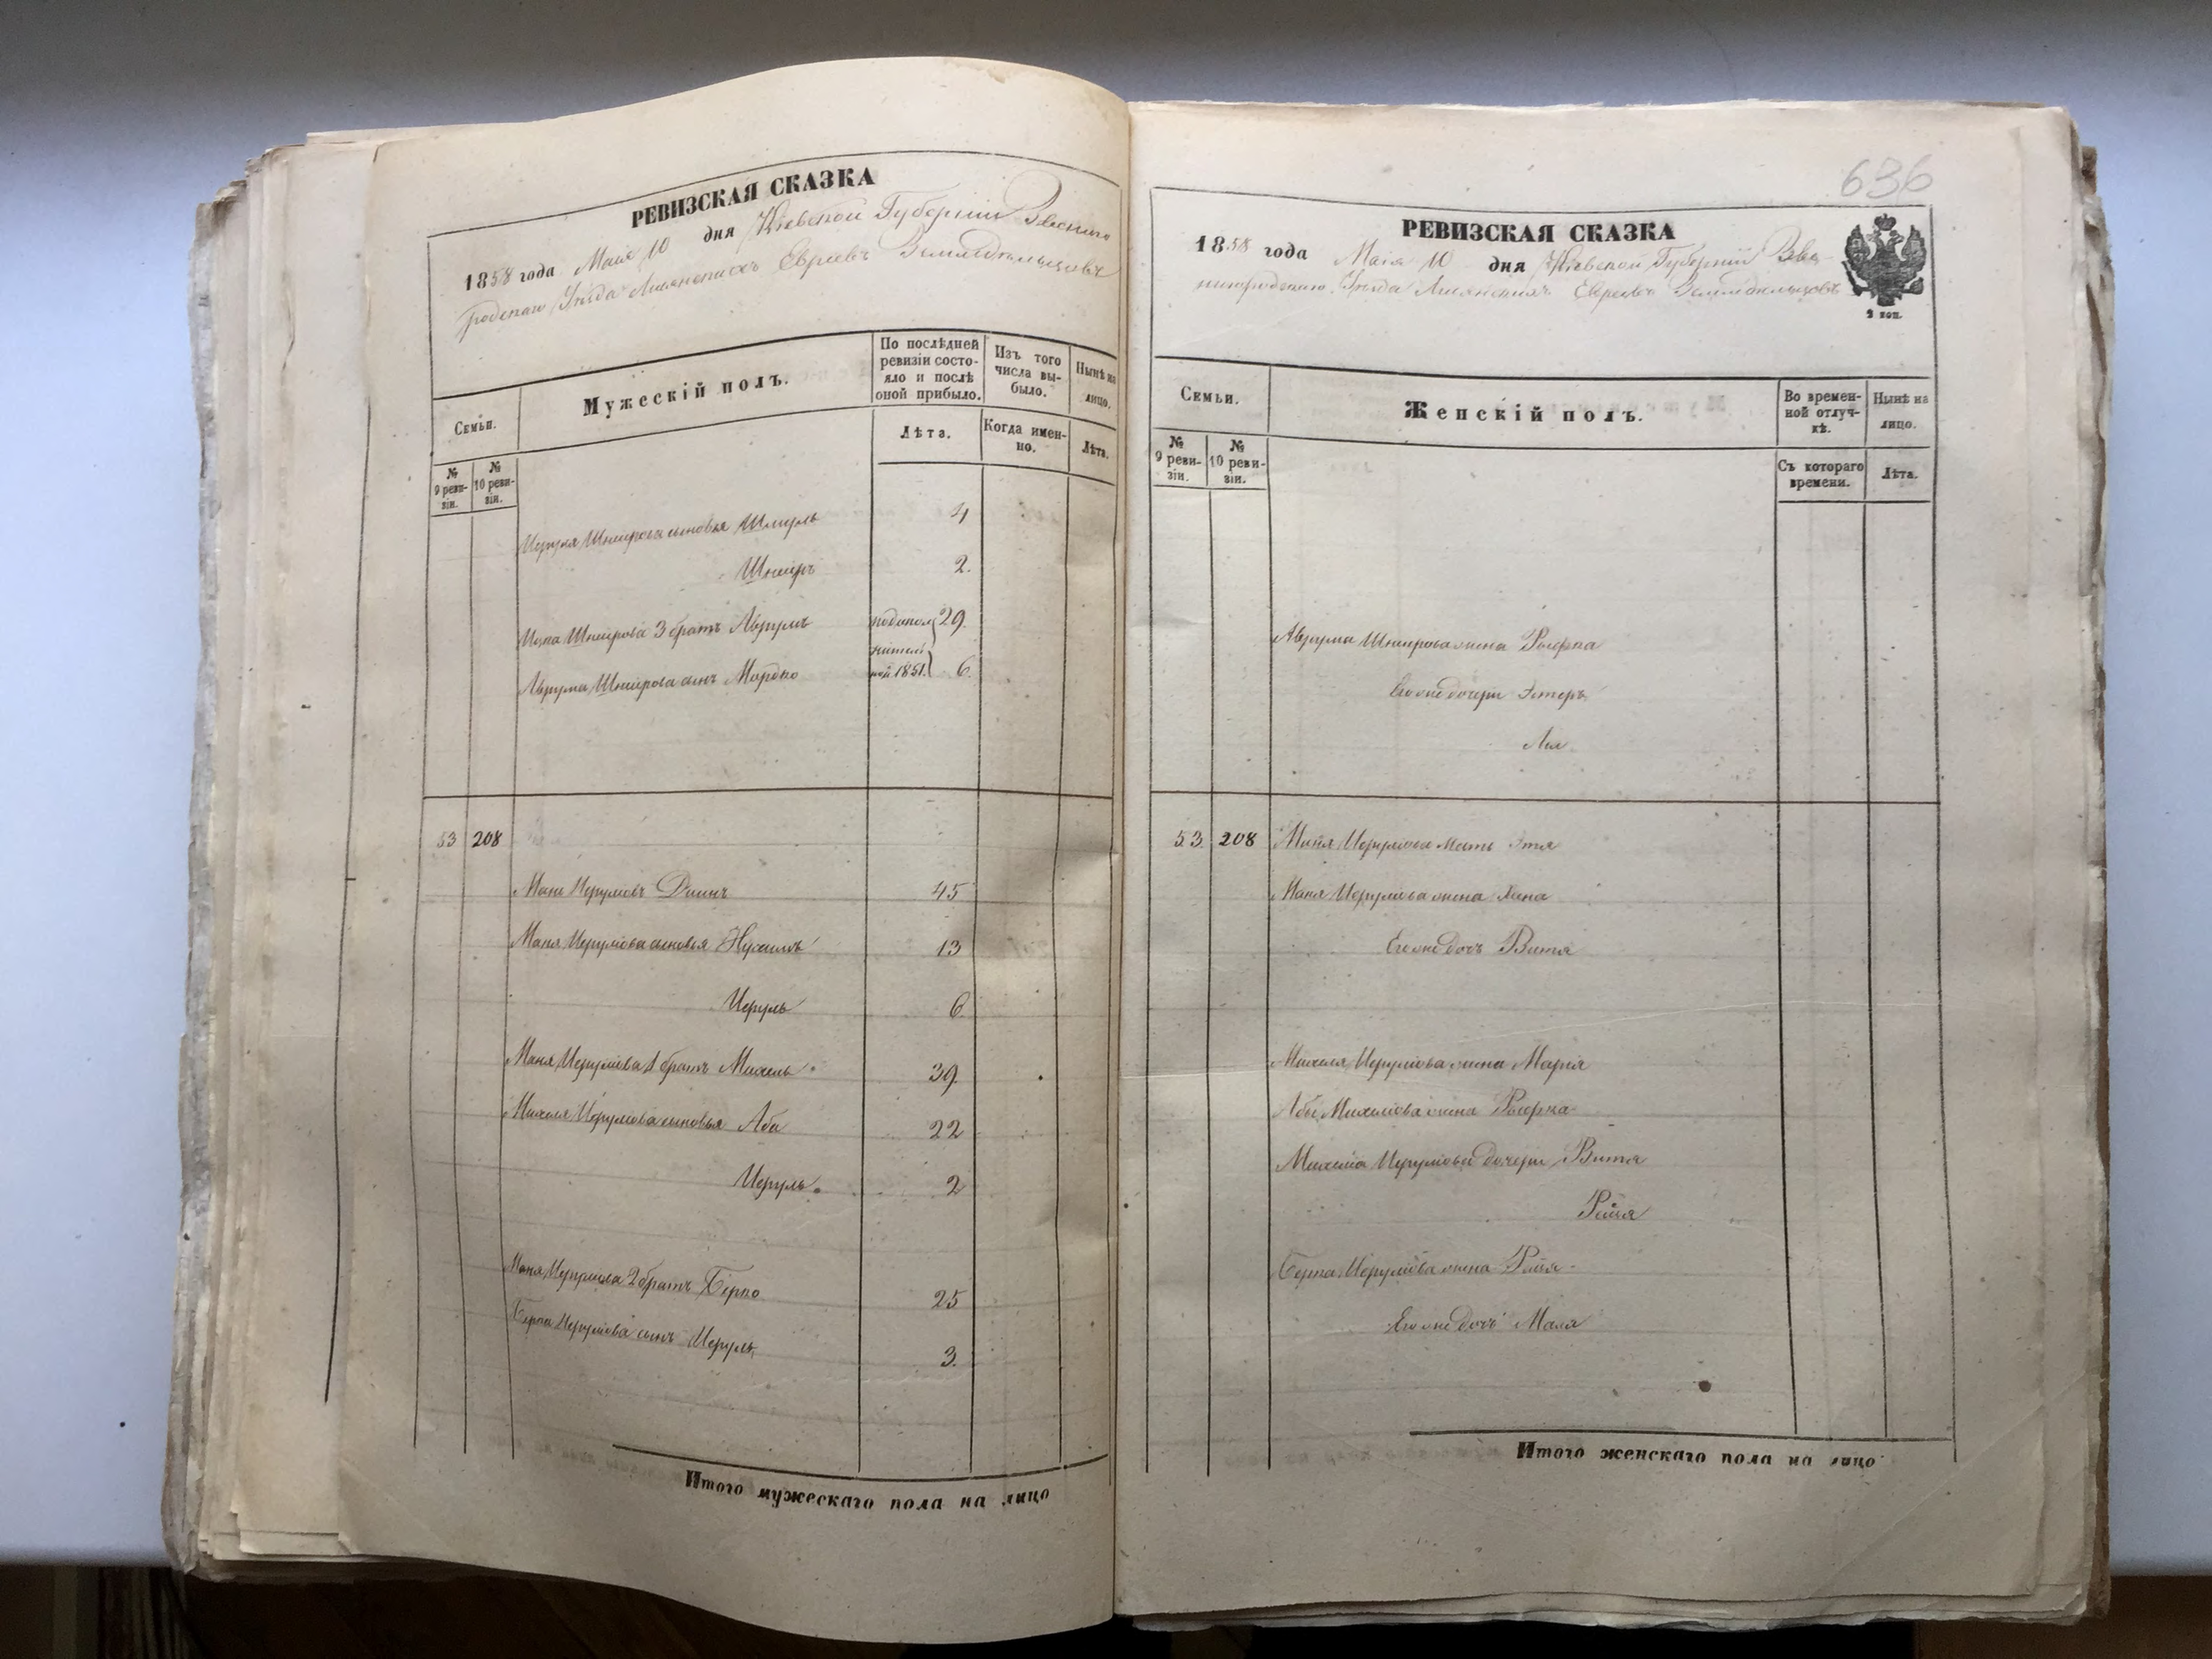 РЕВИЗСКАЯ СКАЗКА
1858 года Мая 10 дня Кіевской Губерніи Звениго
родскаго Уѣзда Лисянскихъ Евреевъ Земледѣльцовъ
Семьи.
Мужескій полъ.
По послѣдней ревизіи состояло и послѣ оной прибыло.
Изъ того числа выбыло.
Нынѣ на лицо.
№ 9 ревизіи.
№ 10 ревизіи.
Лѣта.
Когда именно.
Лѣта.
Шнеирова сыновья Шмуль 4
Шнеиръ 2.
Шнеирова 3 братъ Аврумъ 29.
Аврума Шнеирова сынъ Мордко 1851. 6.
53 208
Маня Иерулевъ Даинъ 45
Маня Иерулёва сыновья Нухимъ 13
Иеруль 6
Маня Иерулёва 1 братъ Михель 39.
Михеля Иерулёва сыновья Аба 22
Иеруль. 2
Маня Иерулёва 2 братъ Берко 25
Берка Иерулёва сынъ Иеруль 3.
Итого мужескаго пола на лицо
636
РЕВИЗСКАЯ СКАЗКА
1858 года Мая 10 дня Кіевской Губерніи Звe
нигородскаго Уѣзда Лисянскихъ Евреевъ Земледѣльцовъ
2 коп.
Семьи.
Женскій полъ.
Во временной отлучкѣ.
Нынѣ на лицо.
№ 9 ревизіи.
№ 10 ревизіи.
Съ котораго времени.
Лѣта.
Аврума Шнеирова жена Рысрка
Его же дочери Эстеръ
Лея
53. 208 Маня Иерулёва мать Этя
Маня Иерулёва жена Хана
Его же дочь Витя
Михеля Иерулёва жена Марія
Абы Михелёва жена Рысрка
Михеля Иерулёва дочери Витя
Рейзя
Берка Иерулёва жена Рейзя
Его же дочь Маля
Итого женскаго пола на лицо